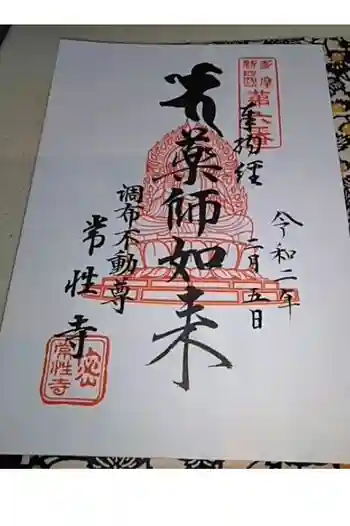 多摩
新四国
第六番
奉拝経
令和二年
二月五日
薬師如来
調布不動尊
常性寺
密山
常性寺